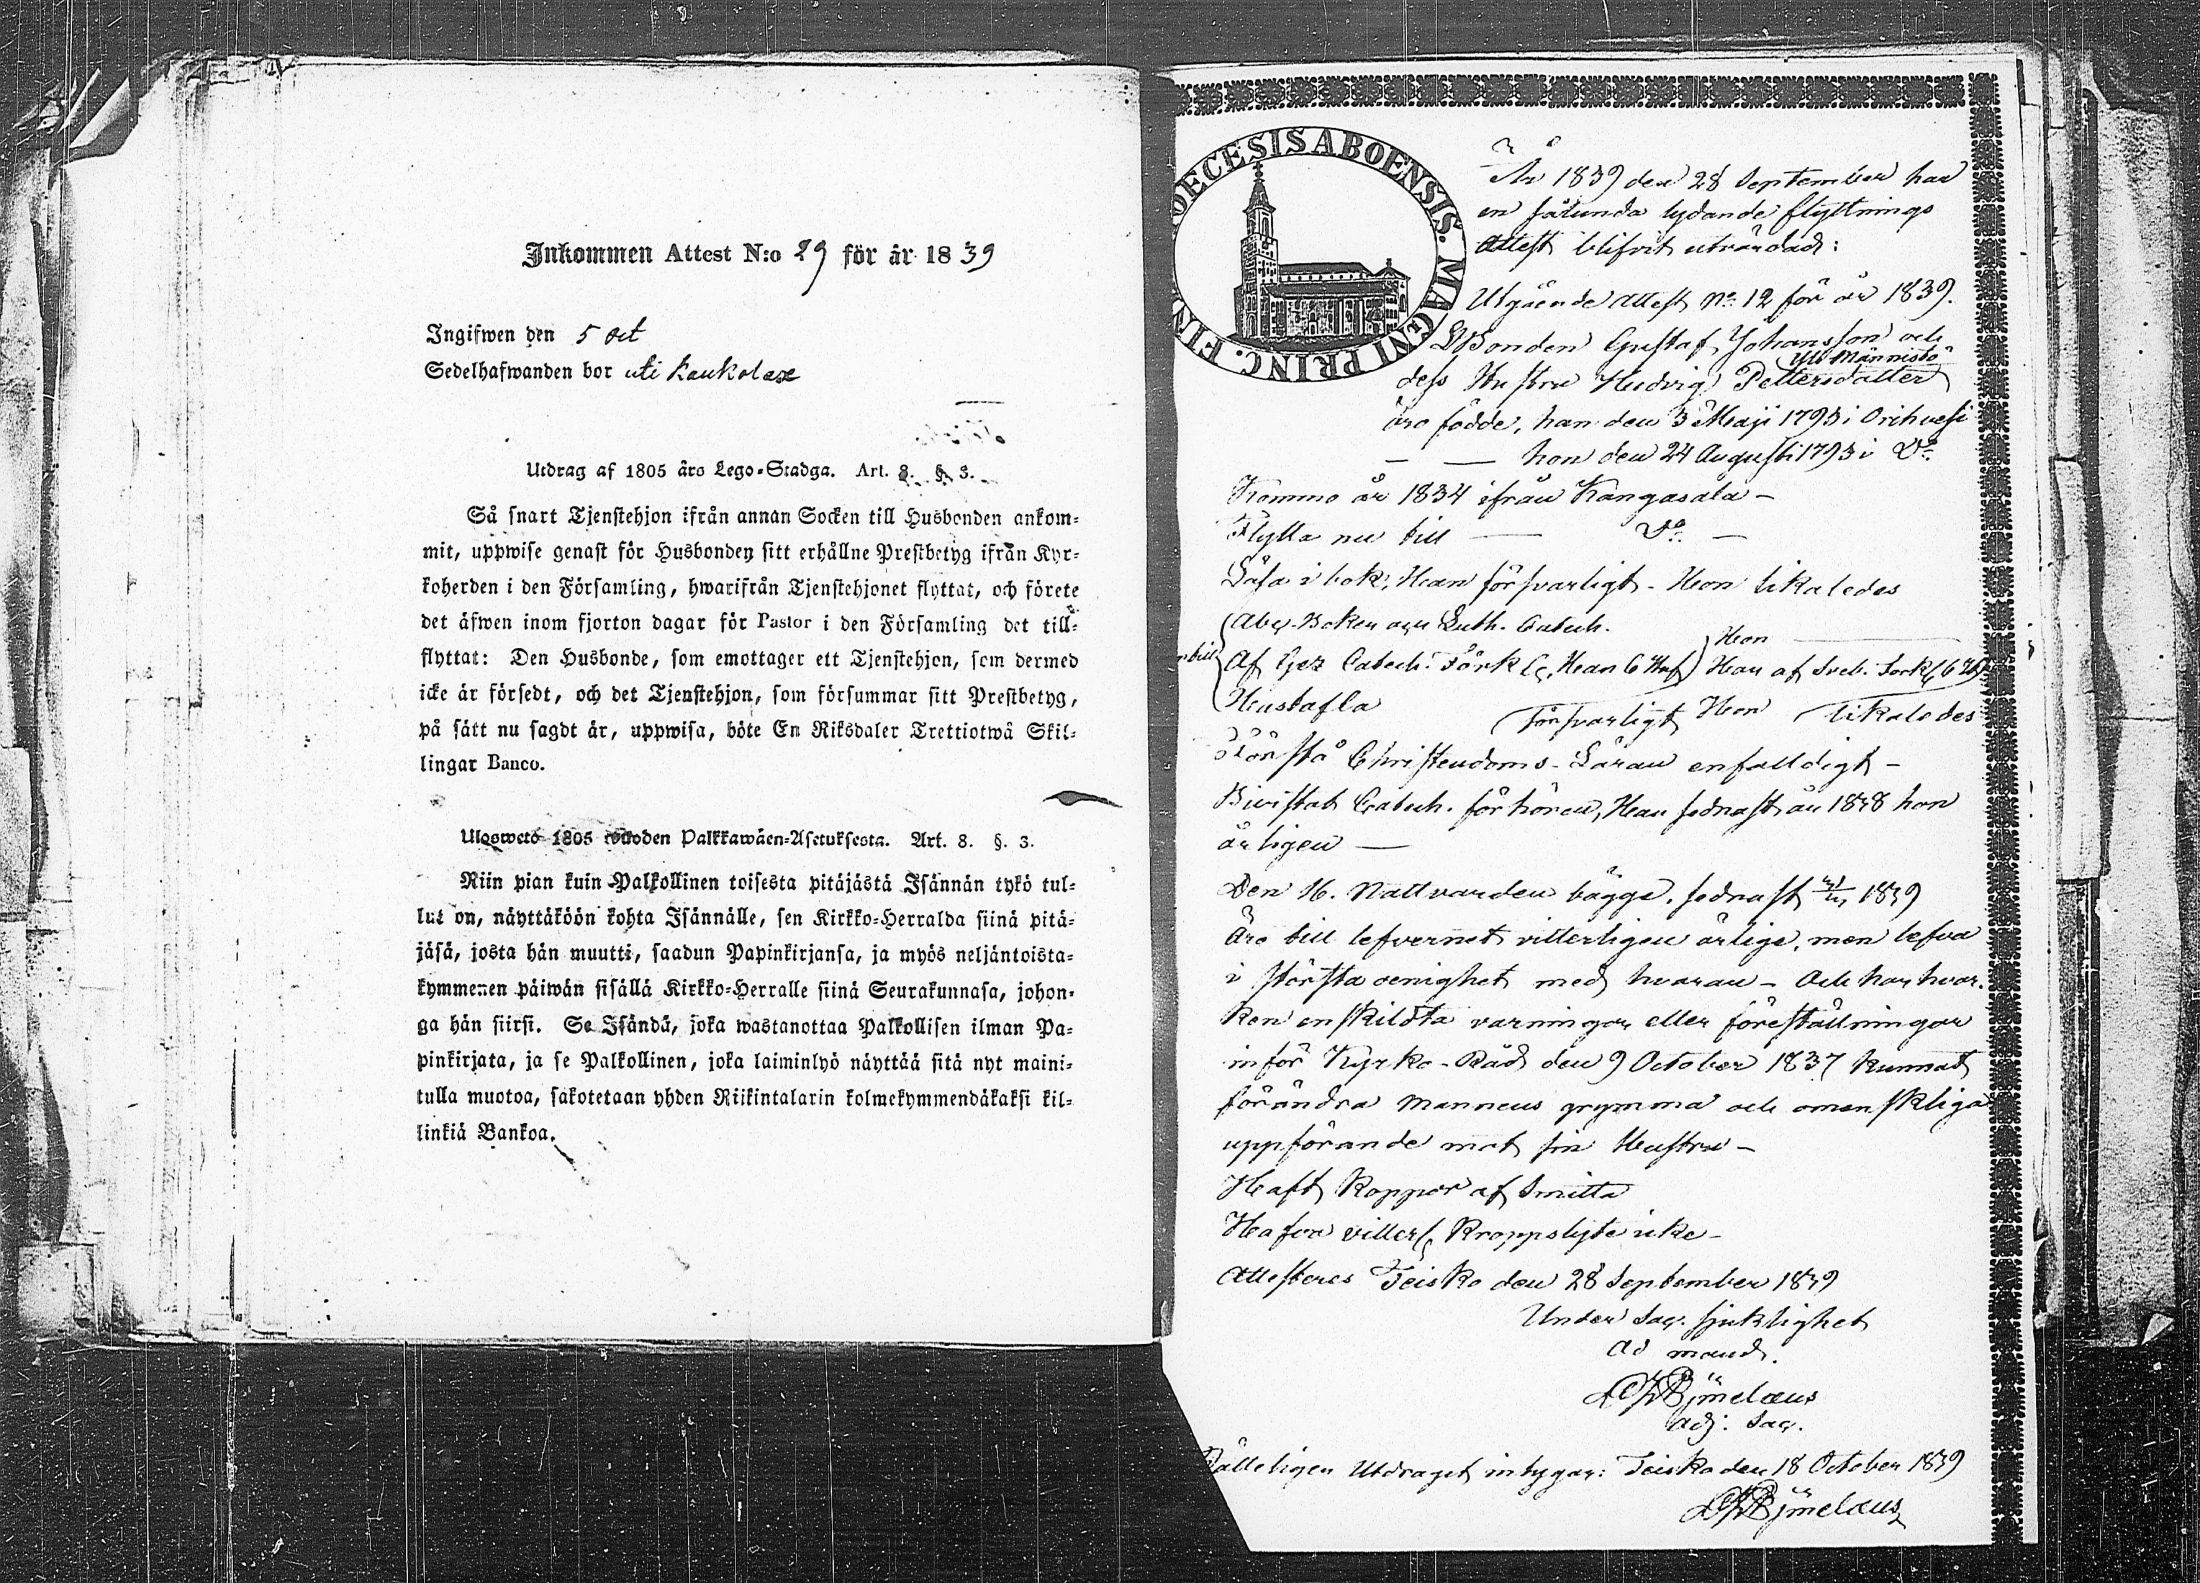 Inkommen Attest N:o 29 för år 1839
Ingifwen den 5 oct
Sedelhafwanden bor uti Kaukolax
Utdrag af 1805 års Lego-Stadga. Art. 8. §. 3.
Så snart Tjenstehjon ifrån annan Socken till Husbonden ankom-
mit, uppwise genast för Husbonden sitt erhållne Prestbetyg ifrån Kyr-
koherden i den Församling, hwarifrån Tjenstehjonet flyttat, och förete
det äfwen inom fjorton dagar för Pastor i den Församling det till-
flyttat: Den Husbonde, som emottager ett Tjenstehjon, som dermed
icke är försedt, och det Tjenstehjon, som försummar sitt Prestbetyg,
på sätt nu sagdt är, uppwisa, böte En Riksdaler Trettiotwå Skil-
lingar Banco.
Uloswetö 1805 wuoden Palkkawäen-Asetuksesta. Art. 8. §. 3.
Niin pian kuin Palkollinen toisesta pitäjästä Isännän tykö tul-
lut on, näyttäköön kohta Isännälle, sen Kirkko-Herralda siinä pitä-
jäsä, josta hän muutti, saadun Papinkirjansa, ja myös neljäntoista-
kymmenen päiwän sisällä Kirkko-Herralle siinä Seurakunnasa, johon-
ga hän siirsi. Se Isändä, joka wastanottaa Palkollisen ilman Pa-
pinkirjata, ja se Palkollinen, joka laiminlyö näyttää sitä nyt maini-
tulla muotoa, sakotetaan yhden Riikintalarin kolmekymmendäkaksi kil-
linkiä Bankoa.
OECESIS ABOENSIS. MAGNI PRINC. FIN
År 1839 den 28 September har
en sålunda lydande flyttnings
attest blifvit utfärdad:
Utgående attest No 12 för år 1839.
Bonden Gustaf Johansson och
Yli Männistö
dess Hustru Hedvig Pettersdotter
äro födde, han den 3 Maji 1793 i Orihvesi
— — hon den 24 Augusti 1793 i Do
Kommo år 1834 ifrån Kangasala –
Flytta nu till — Do —
Läsa i bok, Han försvarligt – Hon likaledes
Abc-Boken och Luth. Catech.
Af Gez Catech. Förkl. Han 6 Hufv. Hon —
Han af Sveb. Förkl.
Hustafla försvarligt Hon likaledes
Förstå Christendoms-Läran enfaldigt –
Bivistat Catech. förhören, Han sednast år 1838 hon
årligen —
Den H. Nattvarden bägge, sednast 1839
Äro till lefvernet vitterligen ärlige, men lefva
i största oenighet med hvaran – Och har hvar-
ken enskildta varningar eller föreställningar
inför Kyrko-Råd den 9 October 1837 kunnat
förändra mannens grymma och omenskliga
uppförande mot sin Hustru –
Haft Koppor af Smitta
Hafva vitterl. Kroppslyte icke –
Attesteras Teisko den 28 September 1839
Under Sac. sjuklighet
ad mand.
Björnelæus
adj: Sac.
Rätteligen Utdraget intygar: Teisko den 18 October 1839
Björnelæus